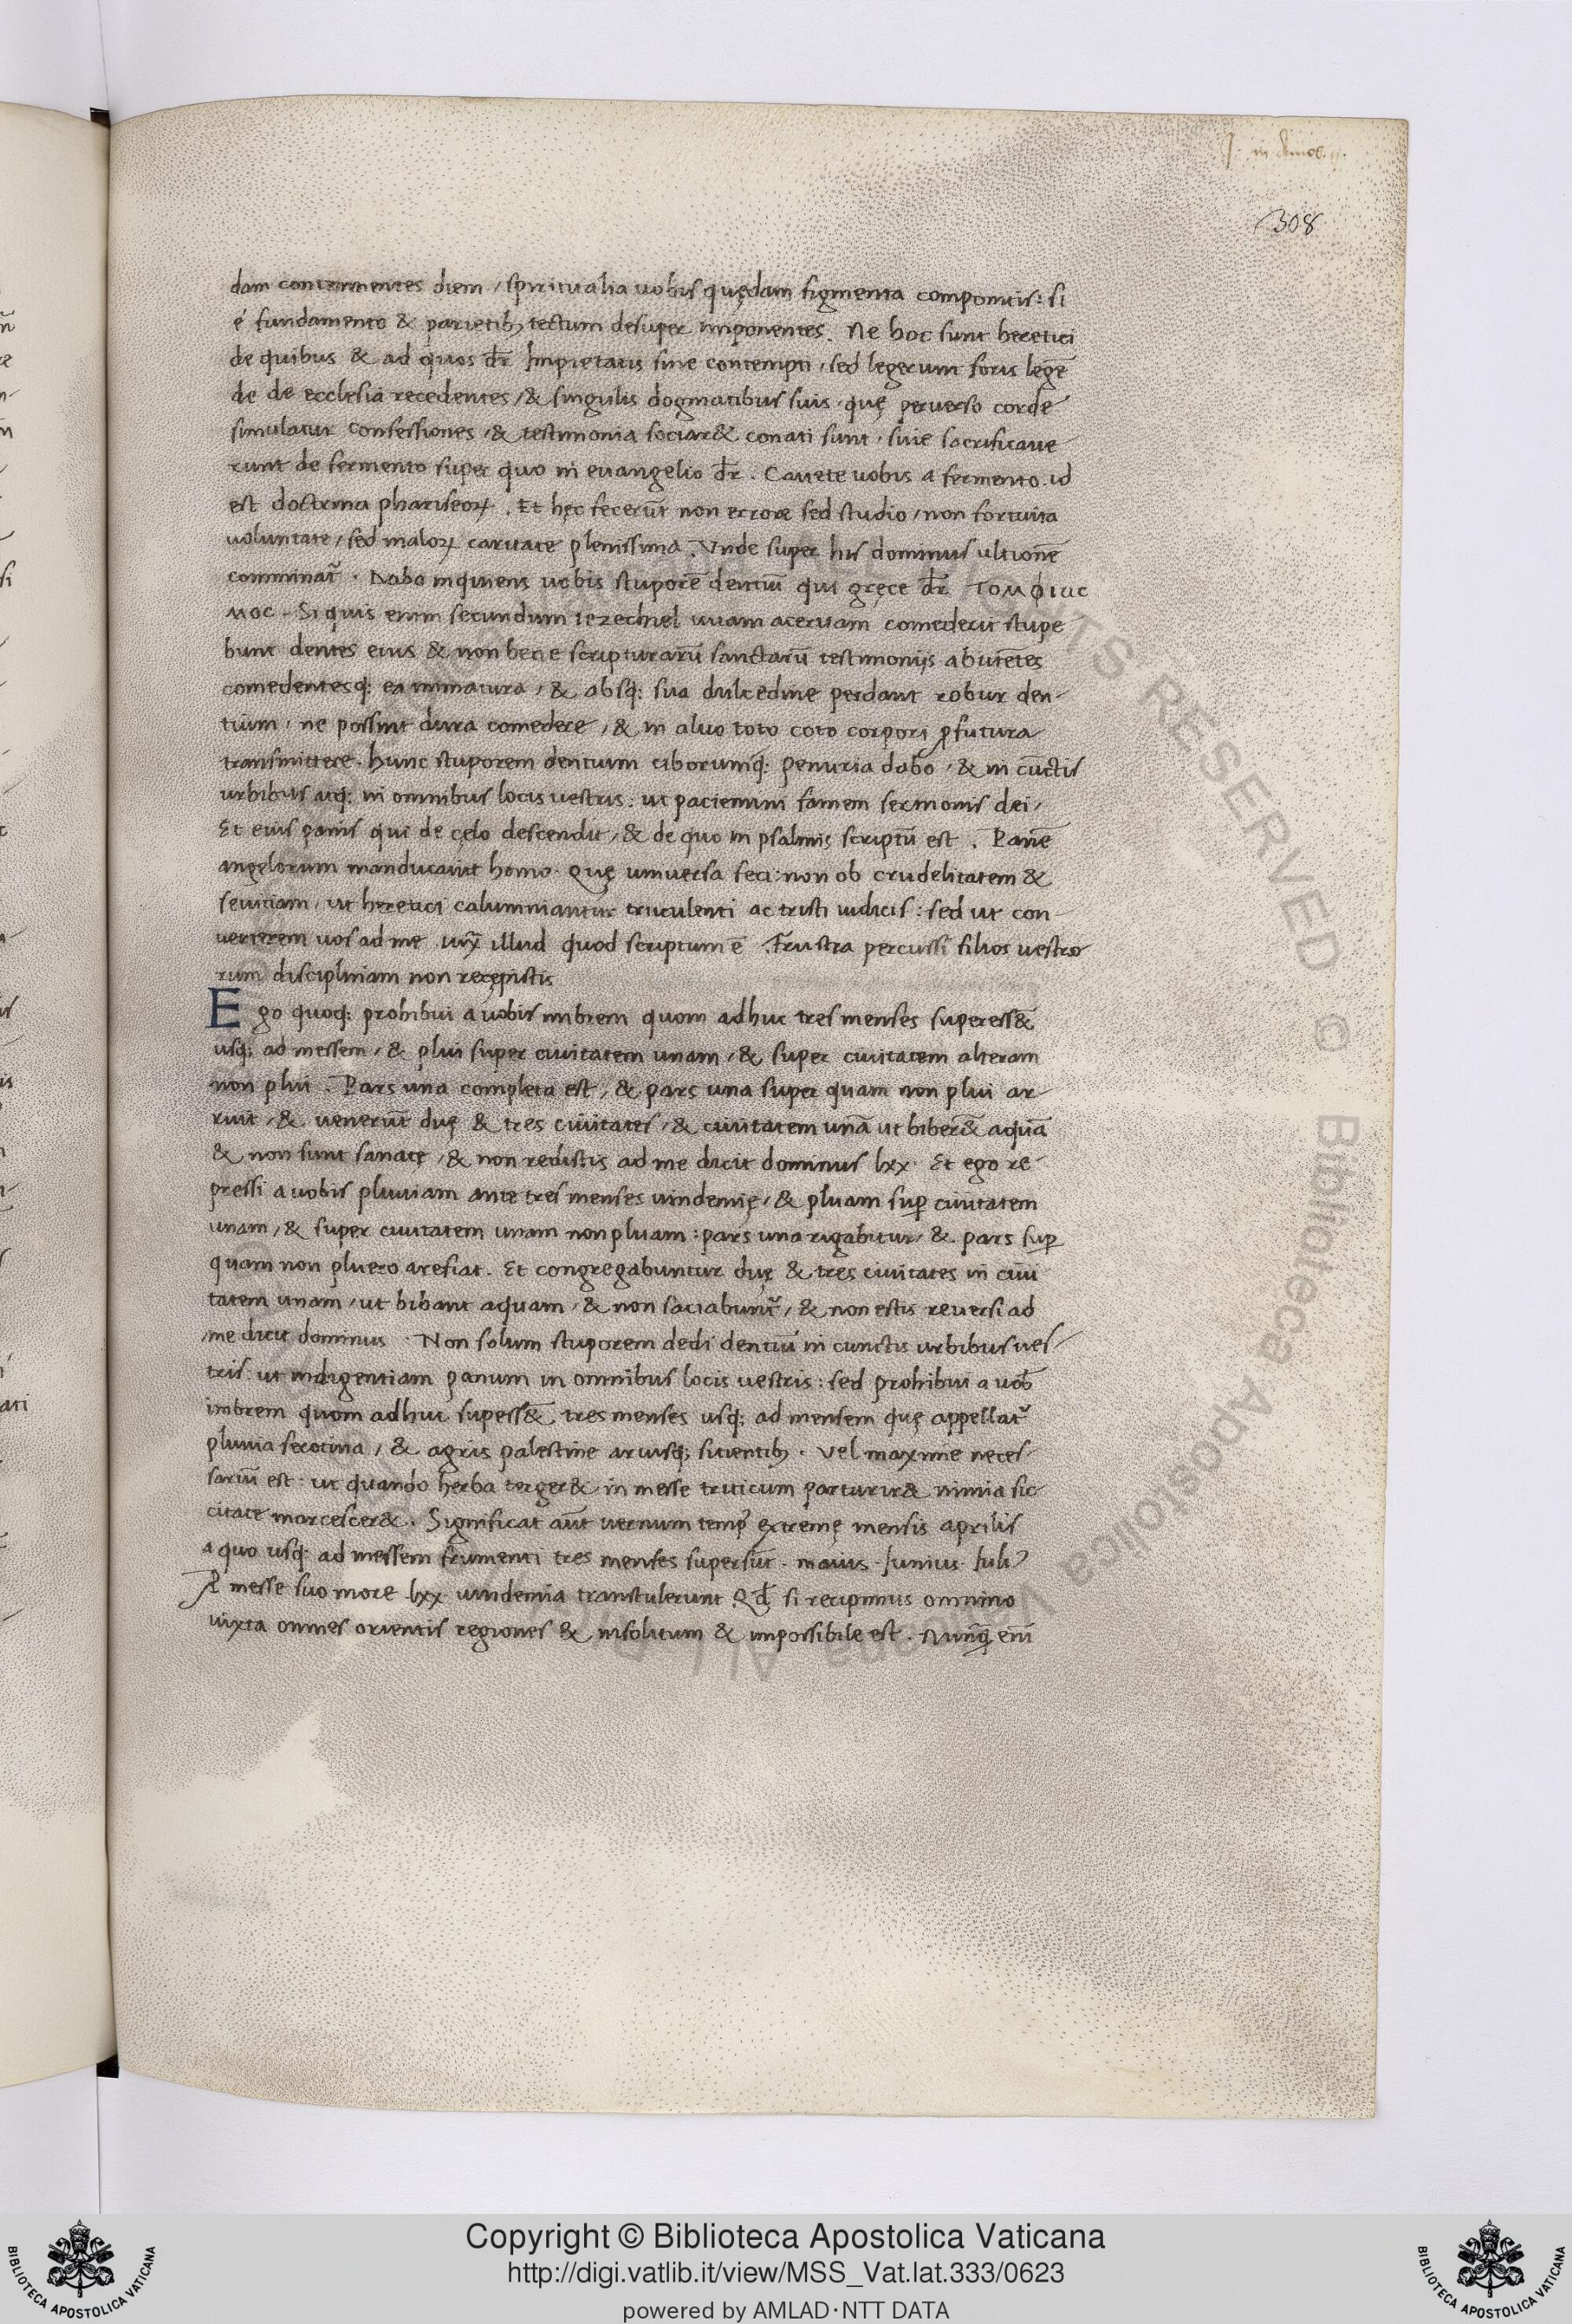 J. in Amos. ij.
308
dam contemnentes diem / spiritualia uobis quędam figmenta componitis: si
é fundamento & parietibꝫ tectum desuper imponentes. Ne hoc sunt heretici
de quibus & ad quos dr̄ Impietatis siue contempti, sed legerunt foris legē
de de ecclesia recedentes / & singulis dogmatibus suis, quę peruerso corde
simulatur confessiones, & testimonia sociar& conati sunt, siue sacrificaue
runt de fermento super quo in euangelio dr̄. Cauete uobis a fermento. id
est doctrina phariseoꝝ. Et hęc fecerūt non errore sed studio / non fortuita
uoluntate / sed maloꝝ caritate plenissima. Vnde super his dominus ultionē
comminat᷑. Dabo inquiens uobis stuporē dentiū qui gręce dr̄ ΤΟΜΦΙΑϹ
ΜΟϹ. Si quis enim secundum iezechiel uuam aceruam comederit stupe
bunt dentes eius & non bene scripturarū sanctarū testimoniis abutētes
comedentesq: ea inmatura / & absq: sua dulcedine perdant robur den-
tium, ne possint dura comedere, & in aluo toto coto corpori ꝓfutura
transmittere. Hunc stuporem dentium ciborumq: penuria dabo, & in cūctis
urbibus atq: in omnibus locis uestris: ut pacienmi famem sermonis dei,
Et eius panis qui de cęlo descendit, & de quo in psalmis scriptū est. Panē
angelorum manducauit homo. Quę uniuersa feci: non ob crudelitatem &
seuitiam, ut heretici calumniantur truculenti ac tristi iudicis: sed ut con-
uerterem uos ad me iux̄ illud quod scriptum ē. Frustra percussi filios uestro
rum disciplinam non recepistis
Ego quoq: prohibui a uobis imbrem quom adhuc tres menses superess&
usq: ad messem, & plui super ciuitatem unam, & super ciuitatem alteram
non plui. Pars una completa est, & pars una super quam non plui ar
ruit, & uenerūt duę & tres ciuitates, & ciuitatem unā ut biber& aquā
& non sunt sanatę, & non redistis ad me dicit dominus lxx. Et ego re-
pressi a uobis pluuiam ante tres menses uindemię, & pluam sup̄ ciuitatem
unam, & super ciuitatem unam non pluam: pars una rigabitur, & pars sup̄
quam non pluero arefiat. Et congregabuntur duę & tres ciuitates in ciui
tatem unam, ut bibant aquam, & non saciabunt᷑, & non estis reuersi ad
me dicit dominus. Non solum stuporem dedi dentiū in cunctis urbibus ues-
tris: ut indigentiam panum in omnibus locis uestris: sed prohibui a uob̄
imbrem quom adhuc supess& tres menses usq: ad mensem quę appellat᷑
pluuia serotina, & agris palestine aruisq: sitientibꝫ. Vel maxime neces-
sariū est: ut quando herba terger& in messe triticum parturir& nimia sic-
citate marcescer&. Significat aūt uernum temp᷒ extremę mensis aprilis
a quo usq: ad messem frumenti tres menses supersūt. maius. Iunius. Iuli᷒
Ꝓ messe suo more lxx uindemia transtulerunt. Qd̄ si recipimus omnino
iuxta omnes orientis regiones & insolitum & impossibile est. Nunq̄ enī
© Biblioteca Apostolica Vaticana ALL RIGHTS RESERVED
Copyright © Biblioteca Apostolica Vaticana
http://digi.vatlib.it/view/MSS_Vat.lat.333/0623
powered by AMLAD·NTT DATA
BIBLIOTECA APOSTOLICA VATICANA
BIBLIOTECA APOSTOLICA VATICANA